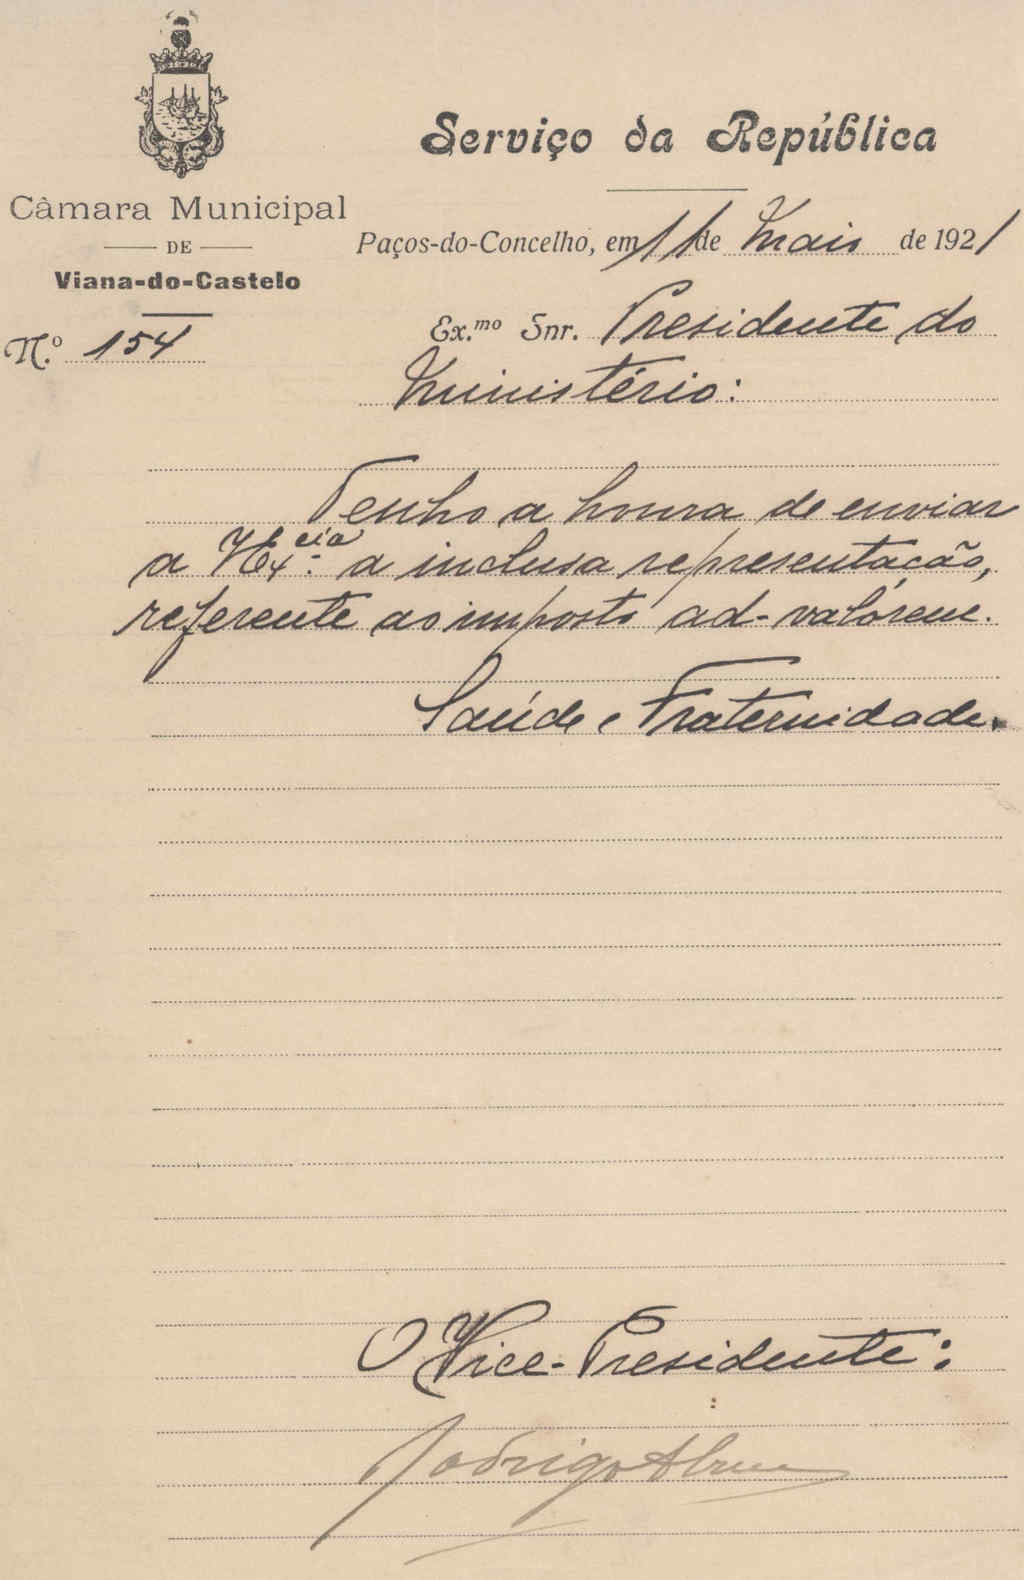 Câmara Municipal
DE
Viana-do-Castelo
N.º 154
Serviço da República
Paços-do-Concelho, em 11 de Maio de 1921
Ex.mo Snr. Presidente do
Ministério:
Tenho a honra de enviar
a V.Ex.cia a inclusa representação,
referente ao imposto ad-valórem.
Saúde e Fraternidade.
O Vice-Presidente:
Rodrigo